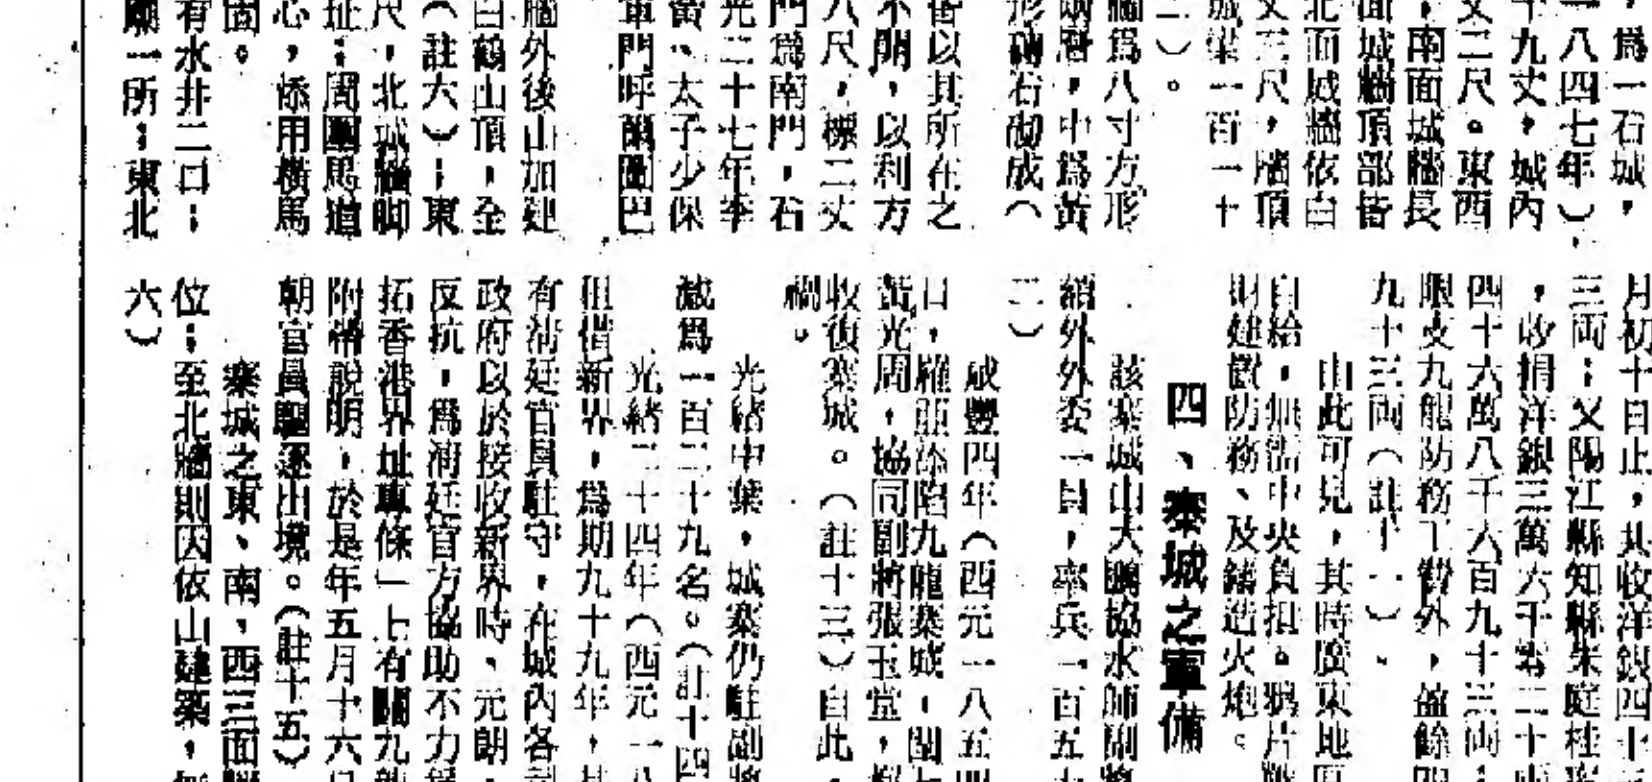 ，爲一石城，
一八四七年），
十九丈，城內
丈二尺。東西
，南面城牆長
面城牆頂部皆
北面城牆依白
丈三尺，牆頂
城垛一百一十
二）。
牆爲八寸方形
兩層，中爲黃
形磚石砌成（
皆以其所在之
不開，以利方
八尺，標二丈
門爲南門，石
光二十七年季
黃、太子少保
軍門呼圖巴
牆外後山加建
白鶴山頂，全
（註六）；東
尺，北城牆脚
址；周圍馬道
心，用橫馬
固。
有水井二口；
廟一所；東北
月初十日止，共收洋銀四十
三両；又陽江縣知縣朱庭桂
，收捐洋銀三萬六千零二十
四十六萬八千六百九十三両；
限支九龍防務工費外，盈餘四
九十三両（註十一）、
由此可見，其時廣東地區
自給，無需中央負担。鴉片
財建設防務、及鑄造火炮。
四、寨城之軍備
該寨城由大鵬協水師副將
額外外委一員，率兵一百五十
二）
咸豐四年（西元一八五四
日，羅亞添陷九龍寨城，閏七
黃光周，協同副將張玉堂，
收復寨城。（註十三）自此，
禍。
光緒中葉，城寨仍駐副將
減爲一百三十九名。（註十四
光緒二十四年（西元一八
租借新界，爲期九十九年，其
有清廷官員駐守，在城內各
政府以於接收新界時、元朗，
反抗，爲清廷官方協助不力
拓香港界址專條」上有關九龍
附帶說明，於是年五月十六日
朝官員驅逐出境。（註十五）
寨城之東、南、西三面
位；至北牆則因依山建築，
六）